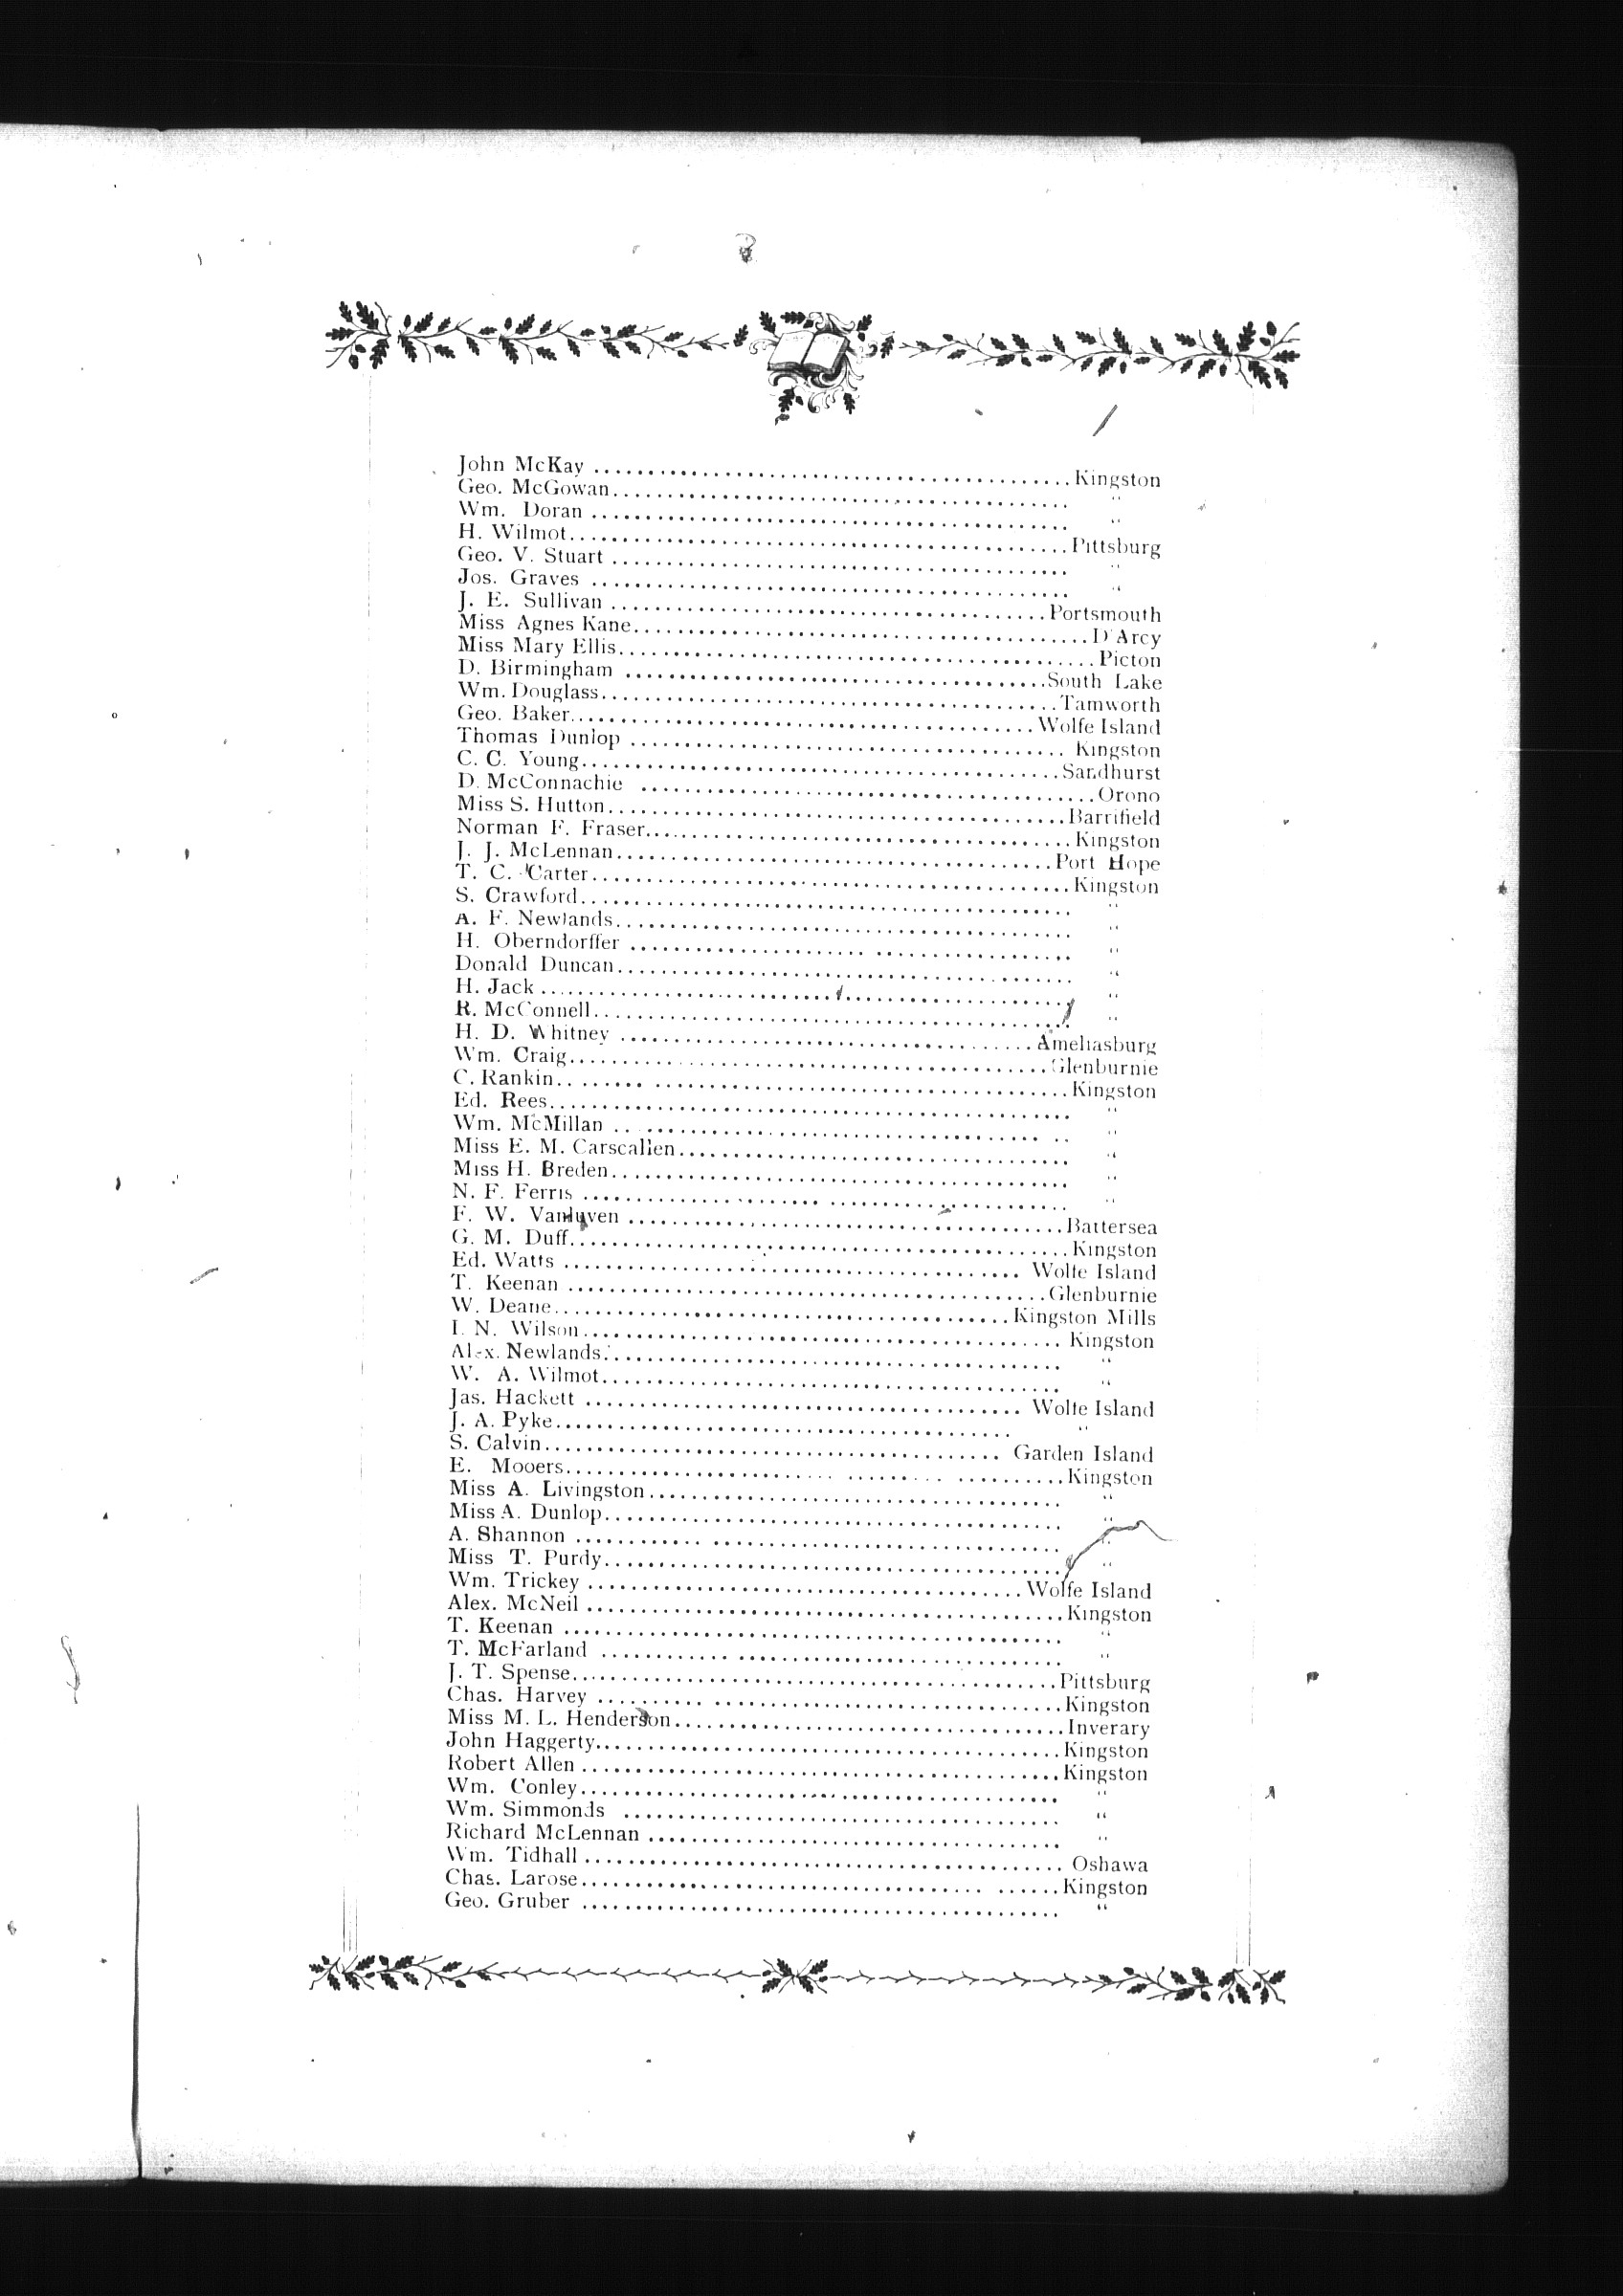 John McKay ........ Kingston
Geo. McGowan ........ "
Wm. Doran ........ "
H. Wilmot ........ Pittsburg
Geo. V. Stuart ........ "
Jos. Graves ........ "
J. E. Sullivan ........ Portsmouth
Miss Agnes Kane ........ D'Arcy
Miss Mary Ellis ........ Picton
D. Birmingham ........ South Lake
Wm. Douglass ........ Tamworth
Geo. Baker ........ Wolfe Island
Thomas Dunlop ........ Kingston
C. C. Young ........ Sandhurst
D. McConnachie ........ Orono
Miss S. Hutton ........ Barrifield
Norman F. Fraser ........ Kingston
J. J. McLennan ........ Port Hope
T. C. Carter ........ Kingston
S. Crawford ........ "
A. F. Newlands ........ "
H. Oberndorffer ........ "
Donald Duncan ........ "
H. Jack ........ "
R. McConnell ........ "
H. D. Whitney ........ Ameliasburg
Wm. Craig ........ Glenburnie
C. Rankin ........ Kingston
Ed. Rees ........ "
Wm. McMillan ........ "
Miss E. M. Carscallen ........ "
Miss H. Breden ........ "
N. F. Ferris ........ "
F. W. Vanluven ........ Battersea
G. M. Duff ........ Kingston
Ed. Watts ........ Wolfe Island
T. Keenan ........ Glenburnie
W. Deane ........ Kingston Mills
I. N. Wilson ........ Kingston
Alex. Newlands ........ "
W. A. Wilmot ........ "
Jas. Hackett ........ Wolfe Island
J. A. Pyke ........ "
S. Calvin ........ Garden Island
E. Mooers ........ Kingston
Miss A. Livingston ........ "
Miss A. Dunlop ........ "
A. Shannon ........ "
Miss T. Purdy ........ "
Wm. Trickey ........ Wolfe Island
Alex. McNeil ........ Kingston
T. Keenan ........ "
T. McFarland ........ "
J. T. Spense ........ Pittsburg
Chas. Harvey ........ Kingston
Miss M. L. Henderson ........ Inverary
John Haggerty ........ Kingston
Robert Allen ........ Kingston
Wm. Conley ........ "
Wm. Simmonds ........ "
Richard McLennan ........ "
Wm. Tidhall ........ Oshawa
Chas. Larose ........ Kingston
Geo. Gruber ........ "